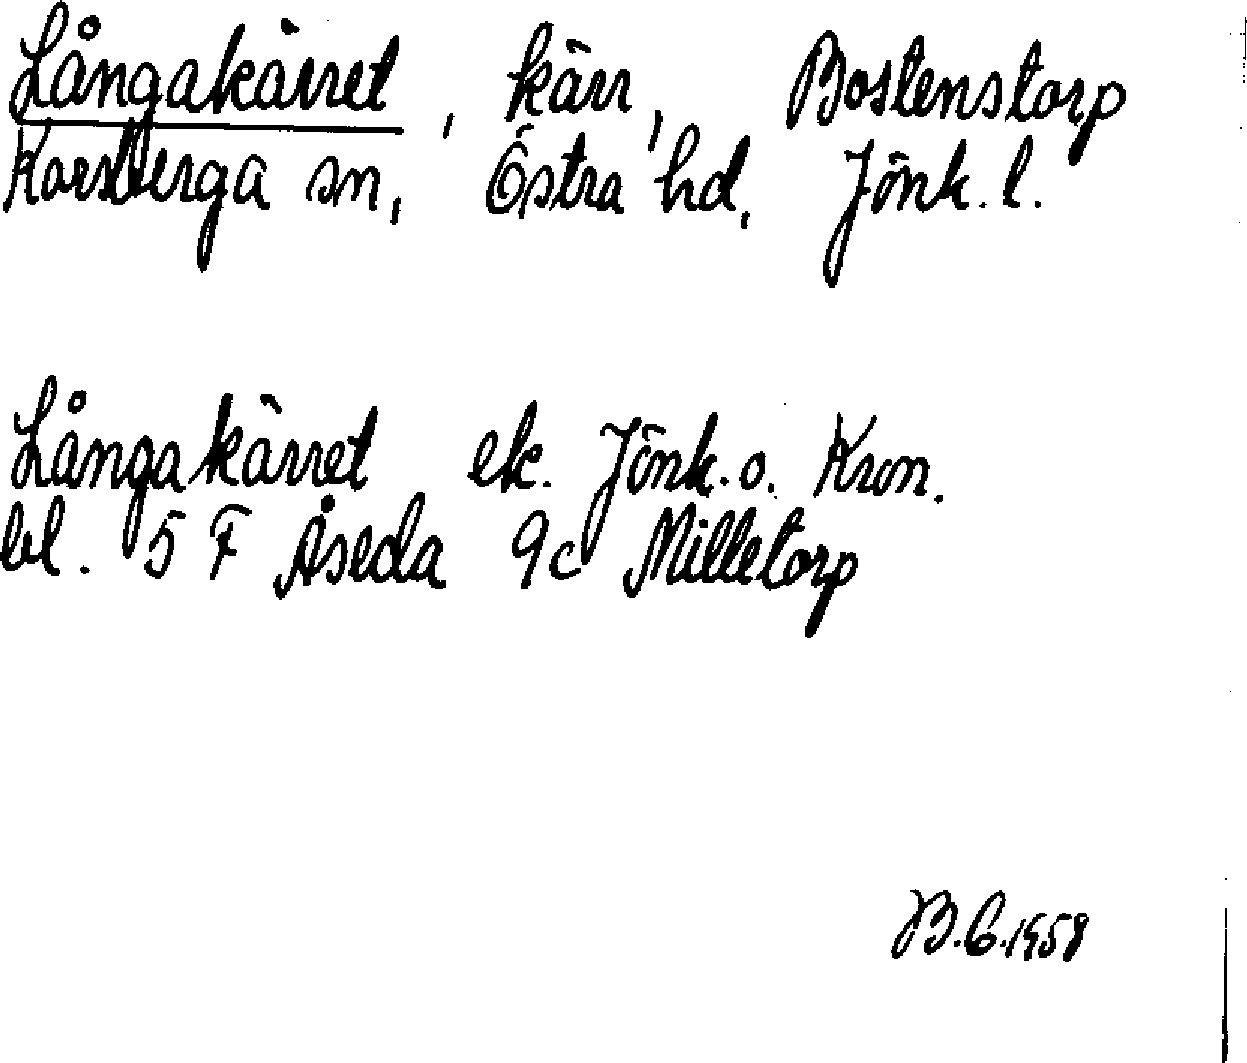 Långakärret, kärr, Bostenstorp
Korsberga sn, Östra hd, Jönk. l.
Långakärret ek. Jönk. o. Kron.
bl. 5 F Åseda 9c Milletorp
B.C. 1958